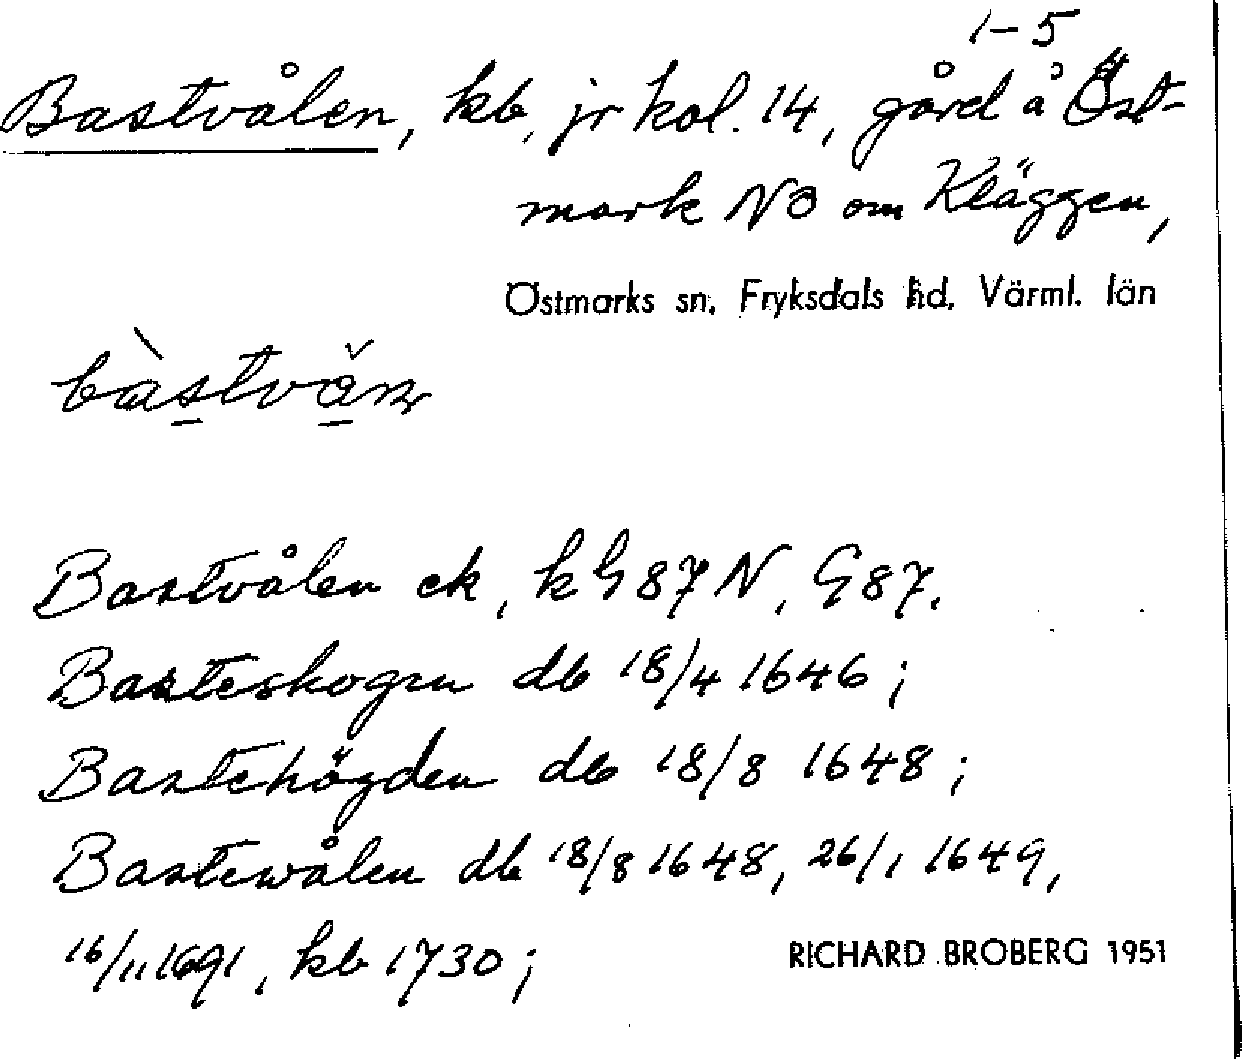 1-5
Bastvålen, kb, jr kol. 14, gård å Öst-
mark NO om Kläggen,
Östmarks sn. Fryksdals hd. Värml. län
Bastvålen ek, k G 87 N, G 87.
Basteskogen db 18/4 1646;
Bastehögden db 18/8 1648;
Bastewålen db 18/8 1648, 26/1 1649,
16/11 1691, kb 1730;
RICHARD BROBERG 1951